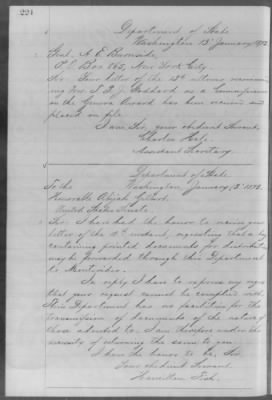 224
Department of State
Washington 13 January 1873
Genl. A. E. Burnside,
P.O. Box 865, New York City.
Sir: Your letter of the 12th
ing Mr. Goddard as a Commissioner
on the Geneva Award has been received and
placed on file.
I am Sir, your obedient Servant,
Charles Hale,
Assistant Secretary.
Department of State
To the Washington, January 13, 1873.
Honorable Abijah Gilbert,
United States Senate.
Sir: I have had the honor to receive your
letter of the instant, requesting that a
containing printed documents for
may be forwarded through this Department
to Montevideo.
In reply I have to express my regret
that your request cannot be complied with
This Department has no facilities for the
transmission of documents of the nature of
those adverted to. I am therefore under the
necessity of returning the same to you.
I have the honor to be, Sir,
Your obedient Servant
Hamilton Fish.